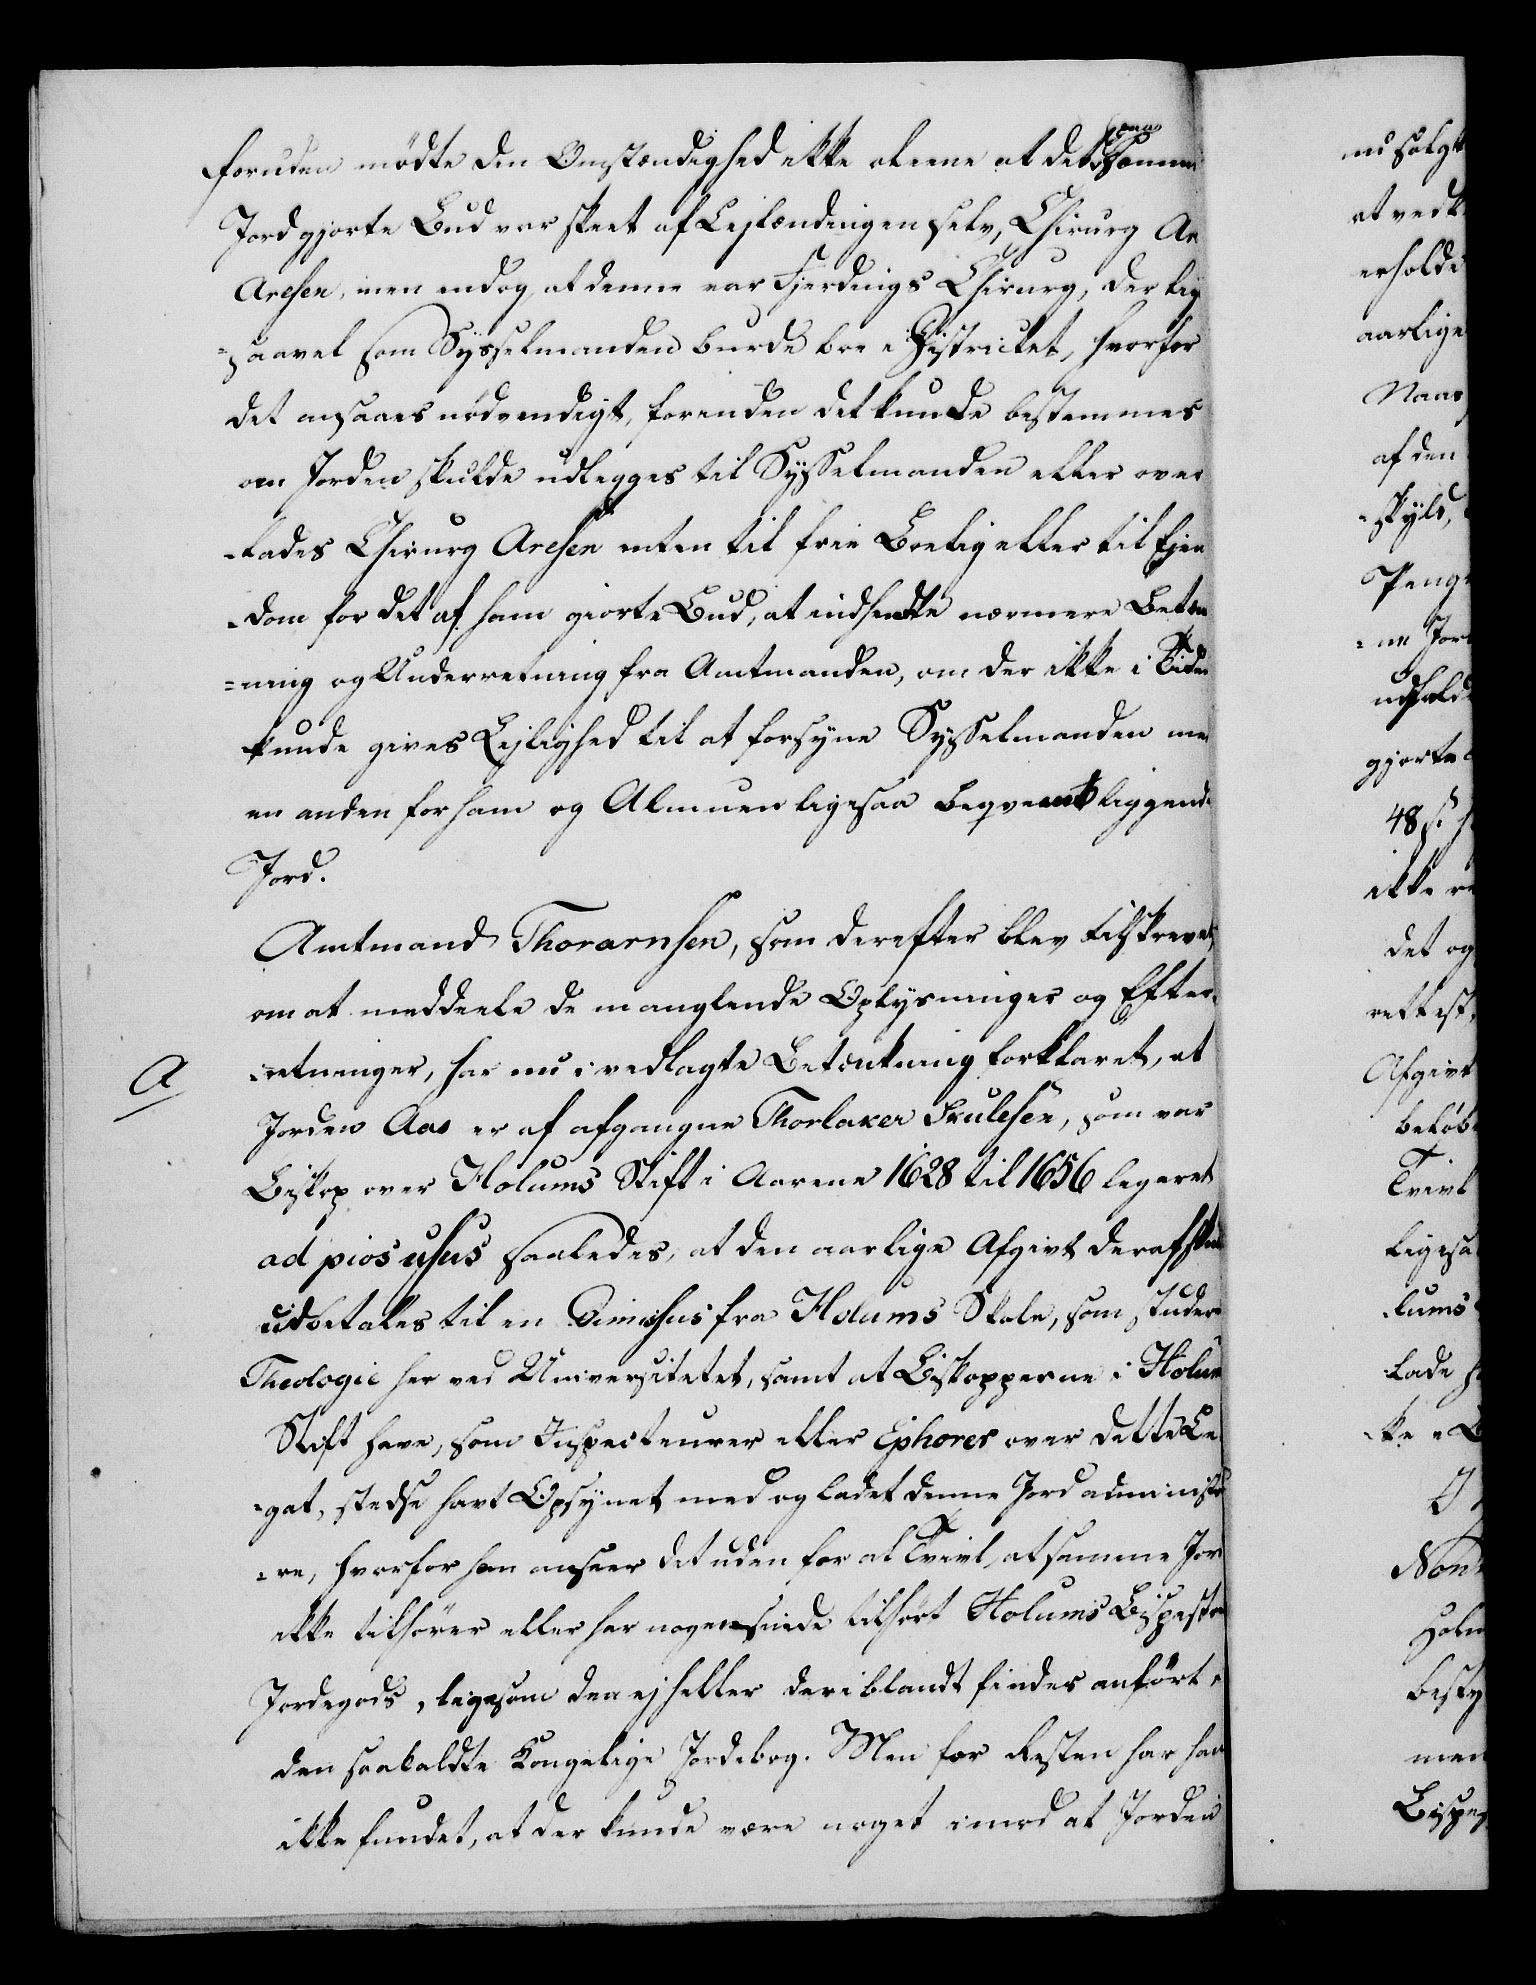 foruden mødte den Omstændighed ikke alene at det paa samme
Jord gjorte Bud var skeet af Lejlændingen selv, Chirurg Are
Aresen, men endog at denne var Fjerdings Chirurg, der lig
=saavel som Sysselmanden burde boe i Districtet, hvorfor
det ansaaes nødvendigt, forenden det kunde bestemmes
om Jorden skulde udlegges til Sysselmanden eller over
-lades Chirurg Aresen enten til frie Boelig eller til Ejen
-dom for det af ham giorte Bud, at indhente nærmere Betæn
=ning og Underretning fra Amtmanden, om der ikke i Tiden
kunde gives Lejlighed til at forsyne Sysselmanden med
en anden for ham og Almuen ligesaa beqvemt liggende
Jord.
Amtmand Thorarensen, som derefter blev tilskrevet
om at meddeele de manglende Oplysninger og Efter-
-retninger, har nu i vedlagte Betænkning forklaret, at
A
Jorden Aas er af afgangne Thorlaker Skulesen, som var
Biskop over Holums Stift i Aarene 1628 til 1656 legeret
ad pios usus saaledes, at den aarlige Afgivt deraf skulde
udbetales til en Dimissus fra Holums Skole, som studere
Theologie her ved Universitetet, samt at Biskopperne i Holum
Stift have, som Inspecteurer eller Ephorer over dette Le
-gat, stedse havt Opsynet med og ladet denne Jord administre
=re, hvorfor han anseer det uden for al Tvivl, at samme Jord
ikke tilhører eller har nogensinde tilhørt Holums Bispestols
Jordegods, ligesom den ej heller deriblandt findes anført i
den saakaldte Kongelige Jordebog. Men for Resten har han
ikke fundet, at der kunde være noget imod at Jorden
nu solgt
at ved
erholde
aarlige
Naar
af den
-skyld,
Penge
=ne Jor
udfalde
gjorte
48 s.
ikke
det og
rettest,
Afgivt
beløb
Tvivl
ligesaa
-lums
lade
-ke
Non
Holu
besty
men
Bispes